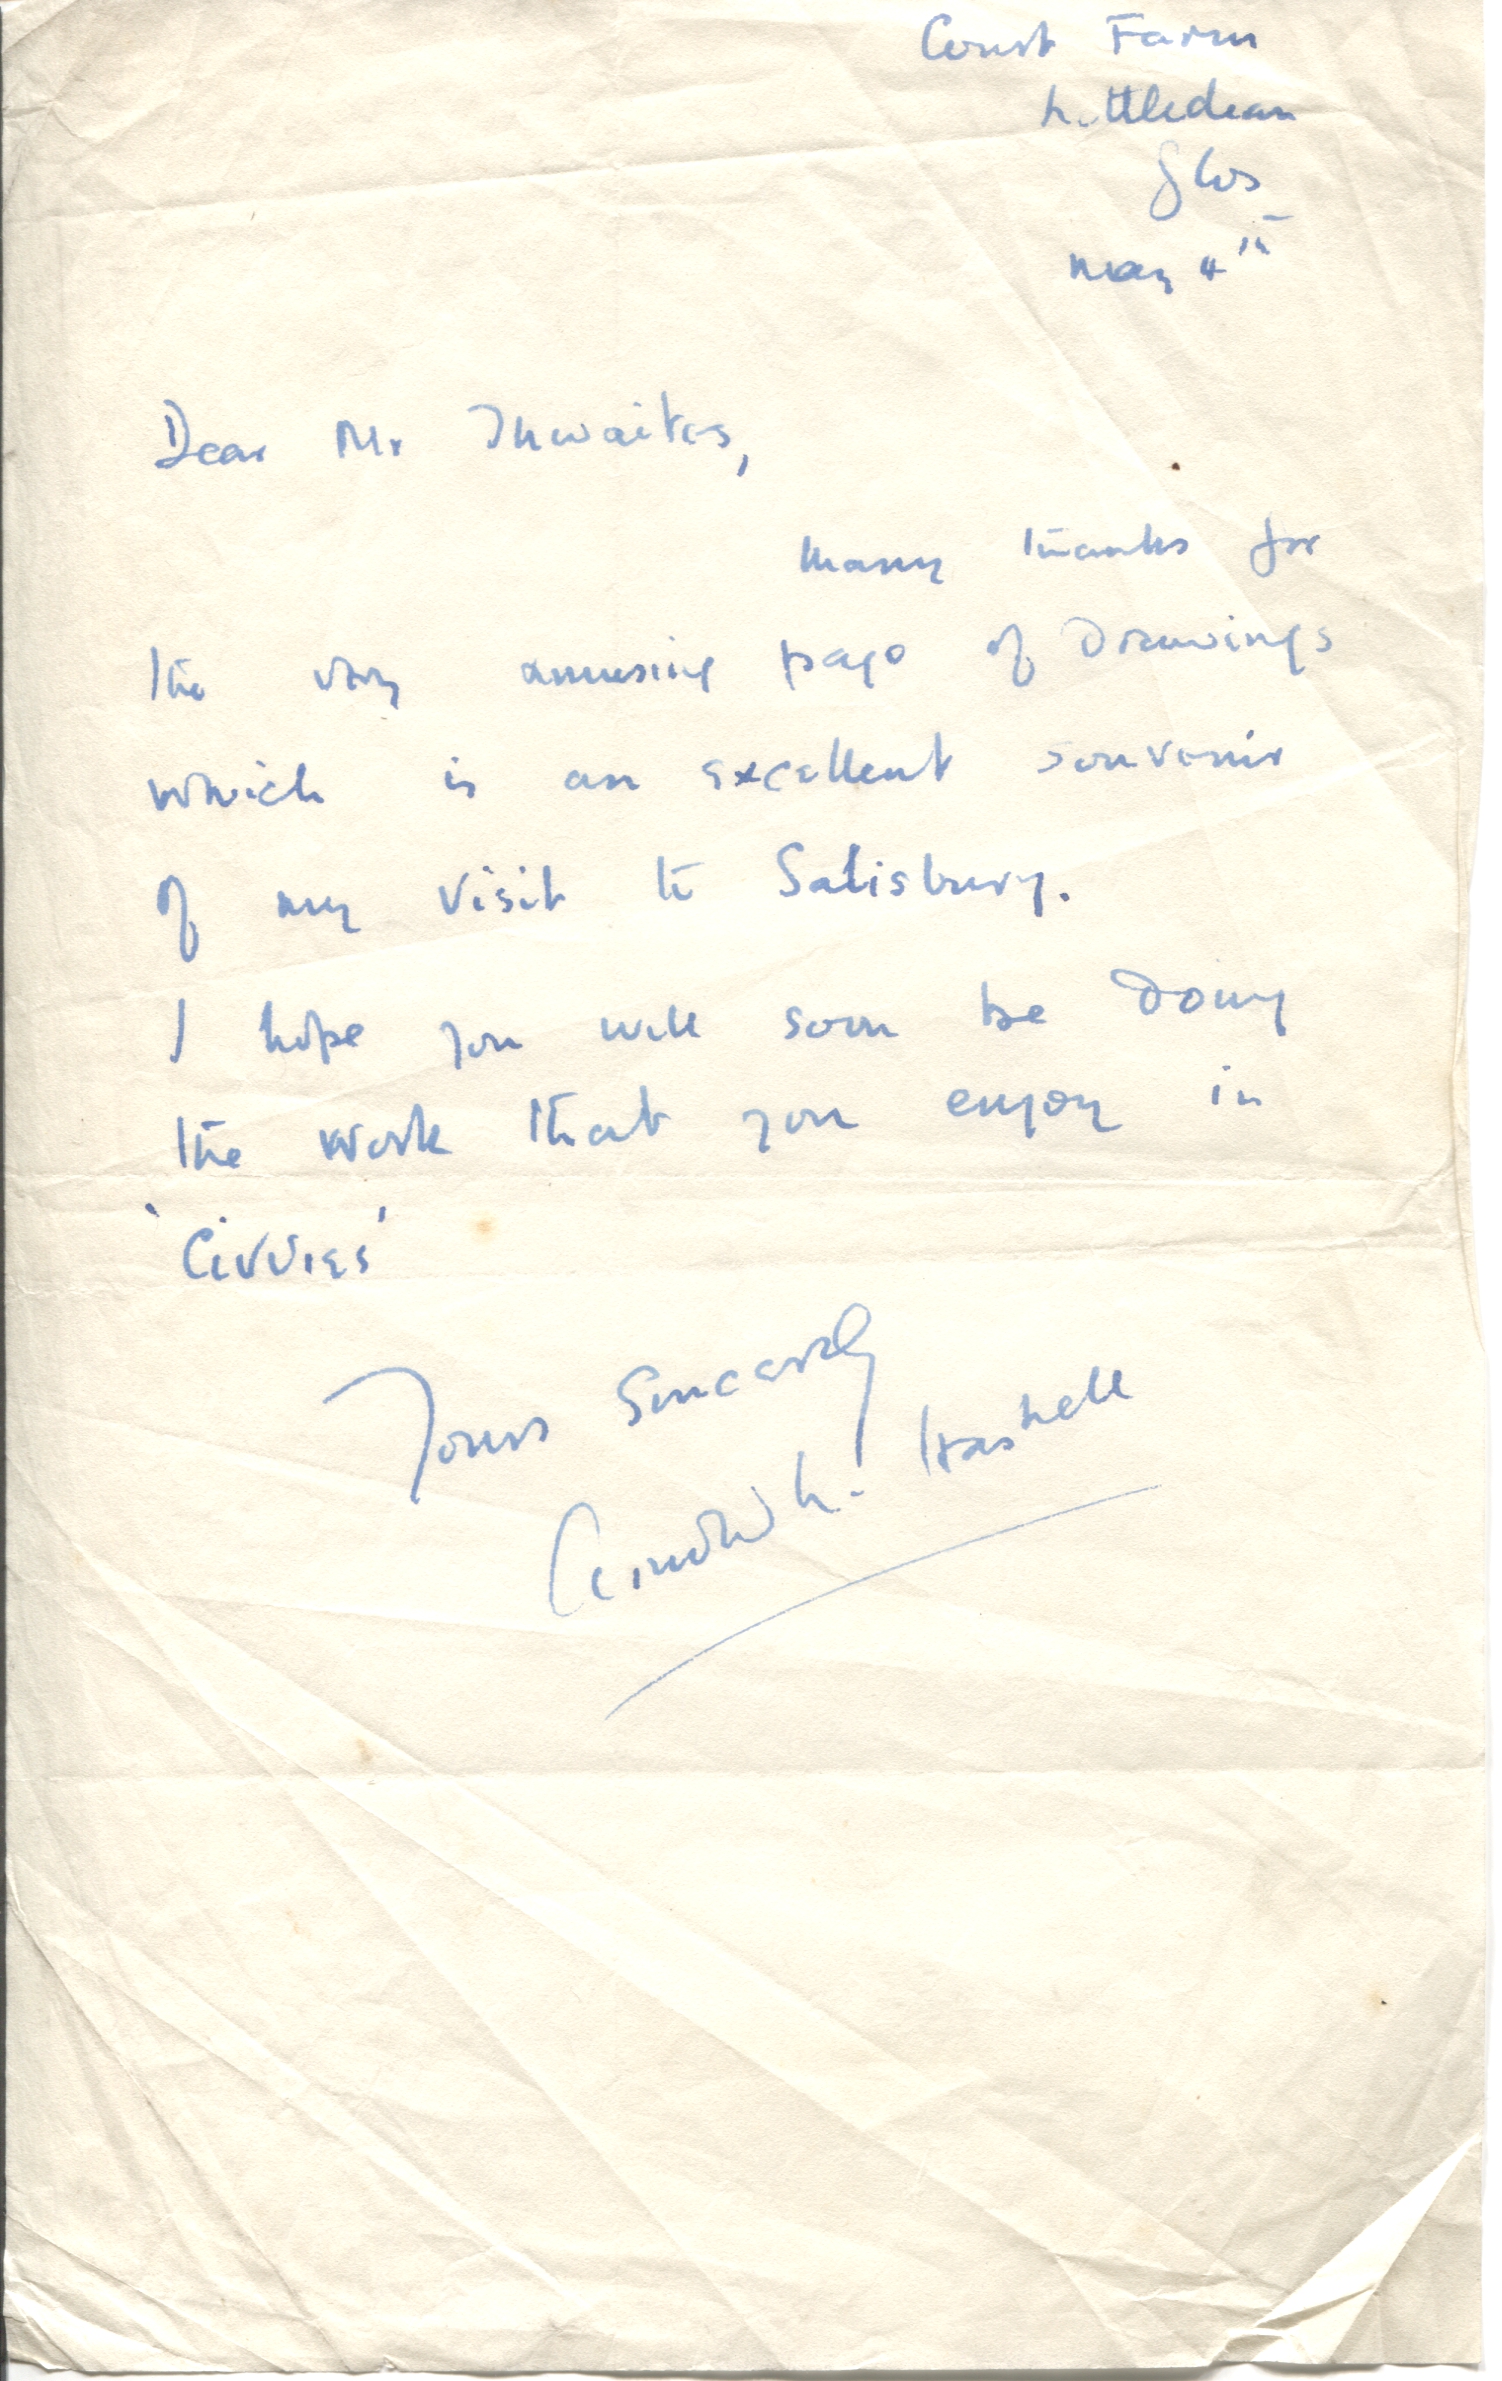 Court Farm
Littledean
Glos
May 4th
Dear Mr Thwaites,
Many thanks for
the very amusing page of Drawings
which is an excellent souvenir
of my visit to Salisbury.
I hope you will soon be doing
the work that you enjoy in
'Civvies'
Yours Sincerely
Arnold L. Haskell